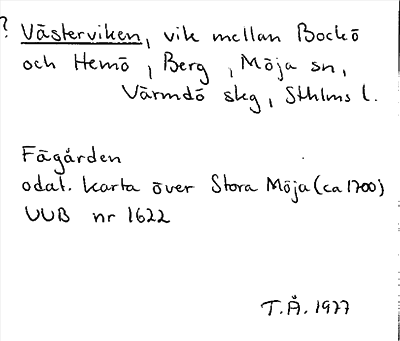 ? Västerviken, vik mellan Bockö
och Hemö, Berg, Möja sn,
Värmdö skg, Sthlms l.
Fägården
odat. karta över Stora Möja (ca 1700)
UUB nr 1622
T.Å. 1977